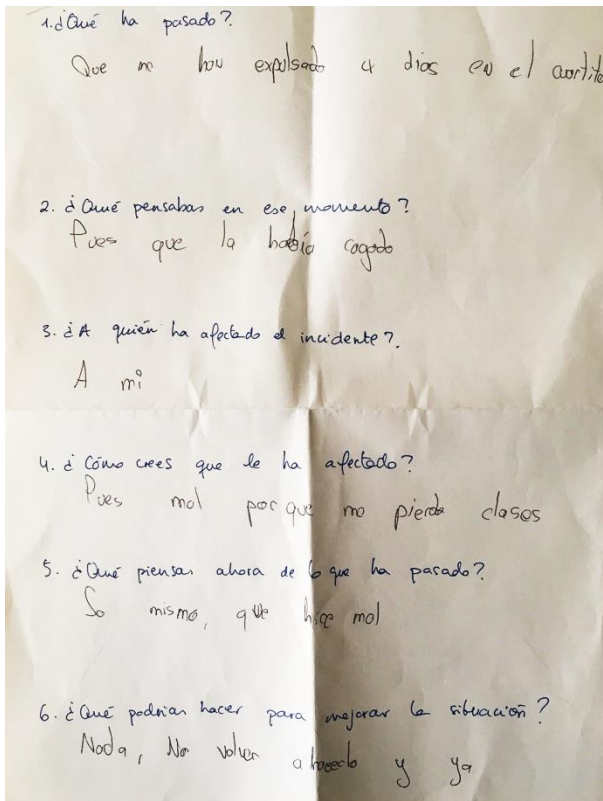 1. ¿Qué ha pasado?
Que me han expulsado 4 dias en el cuartito
2. ¿Qué pensabas en ese momento?
Pues que la había cagado
3. ¿A quién ha afectado el incidente?.
A mi
4. ¿Cómo crees que le ha afectado?
Pues mal porque me pierdo clases
5. ¿Qué piensas ahora de lo que ha pasado?
Lo mismo, que hice mal
6. ¿Qué podrías hacer para mejorar la situación?
Nada, No volver a hacerlo y ya